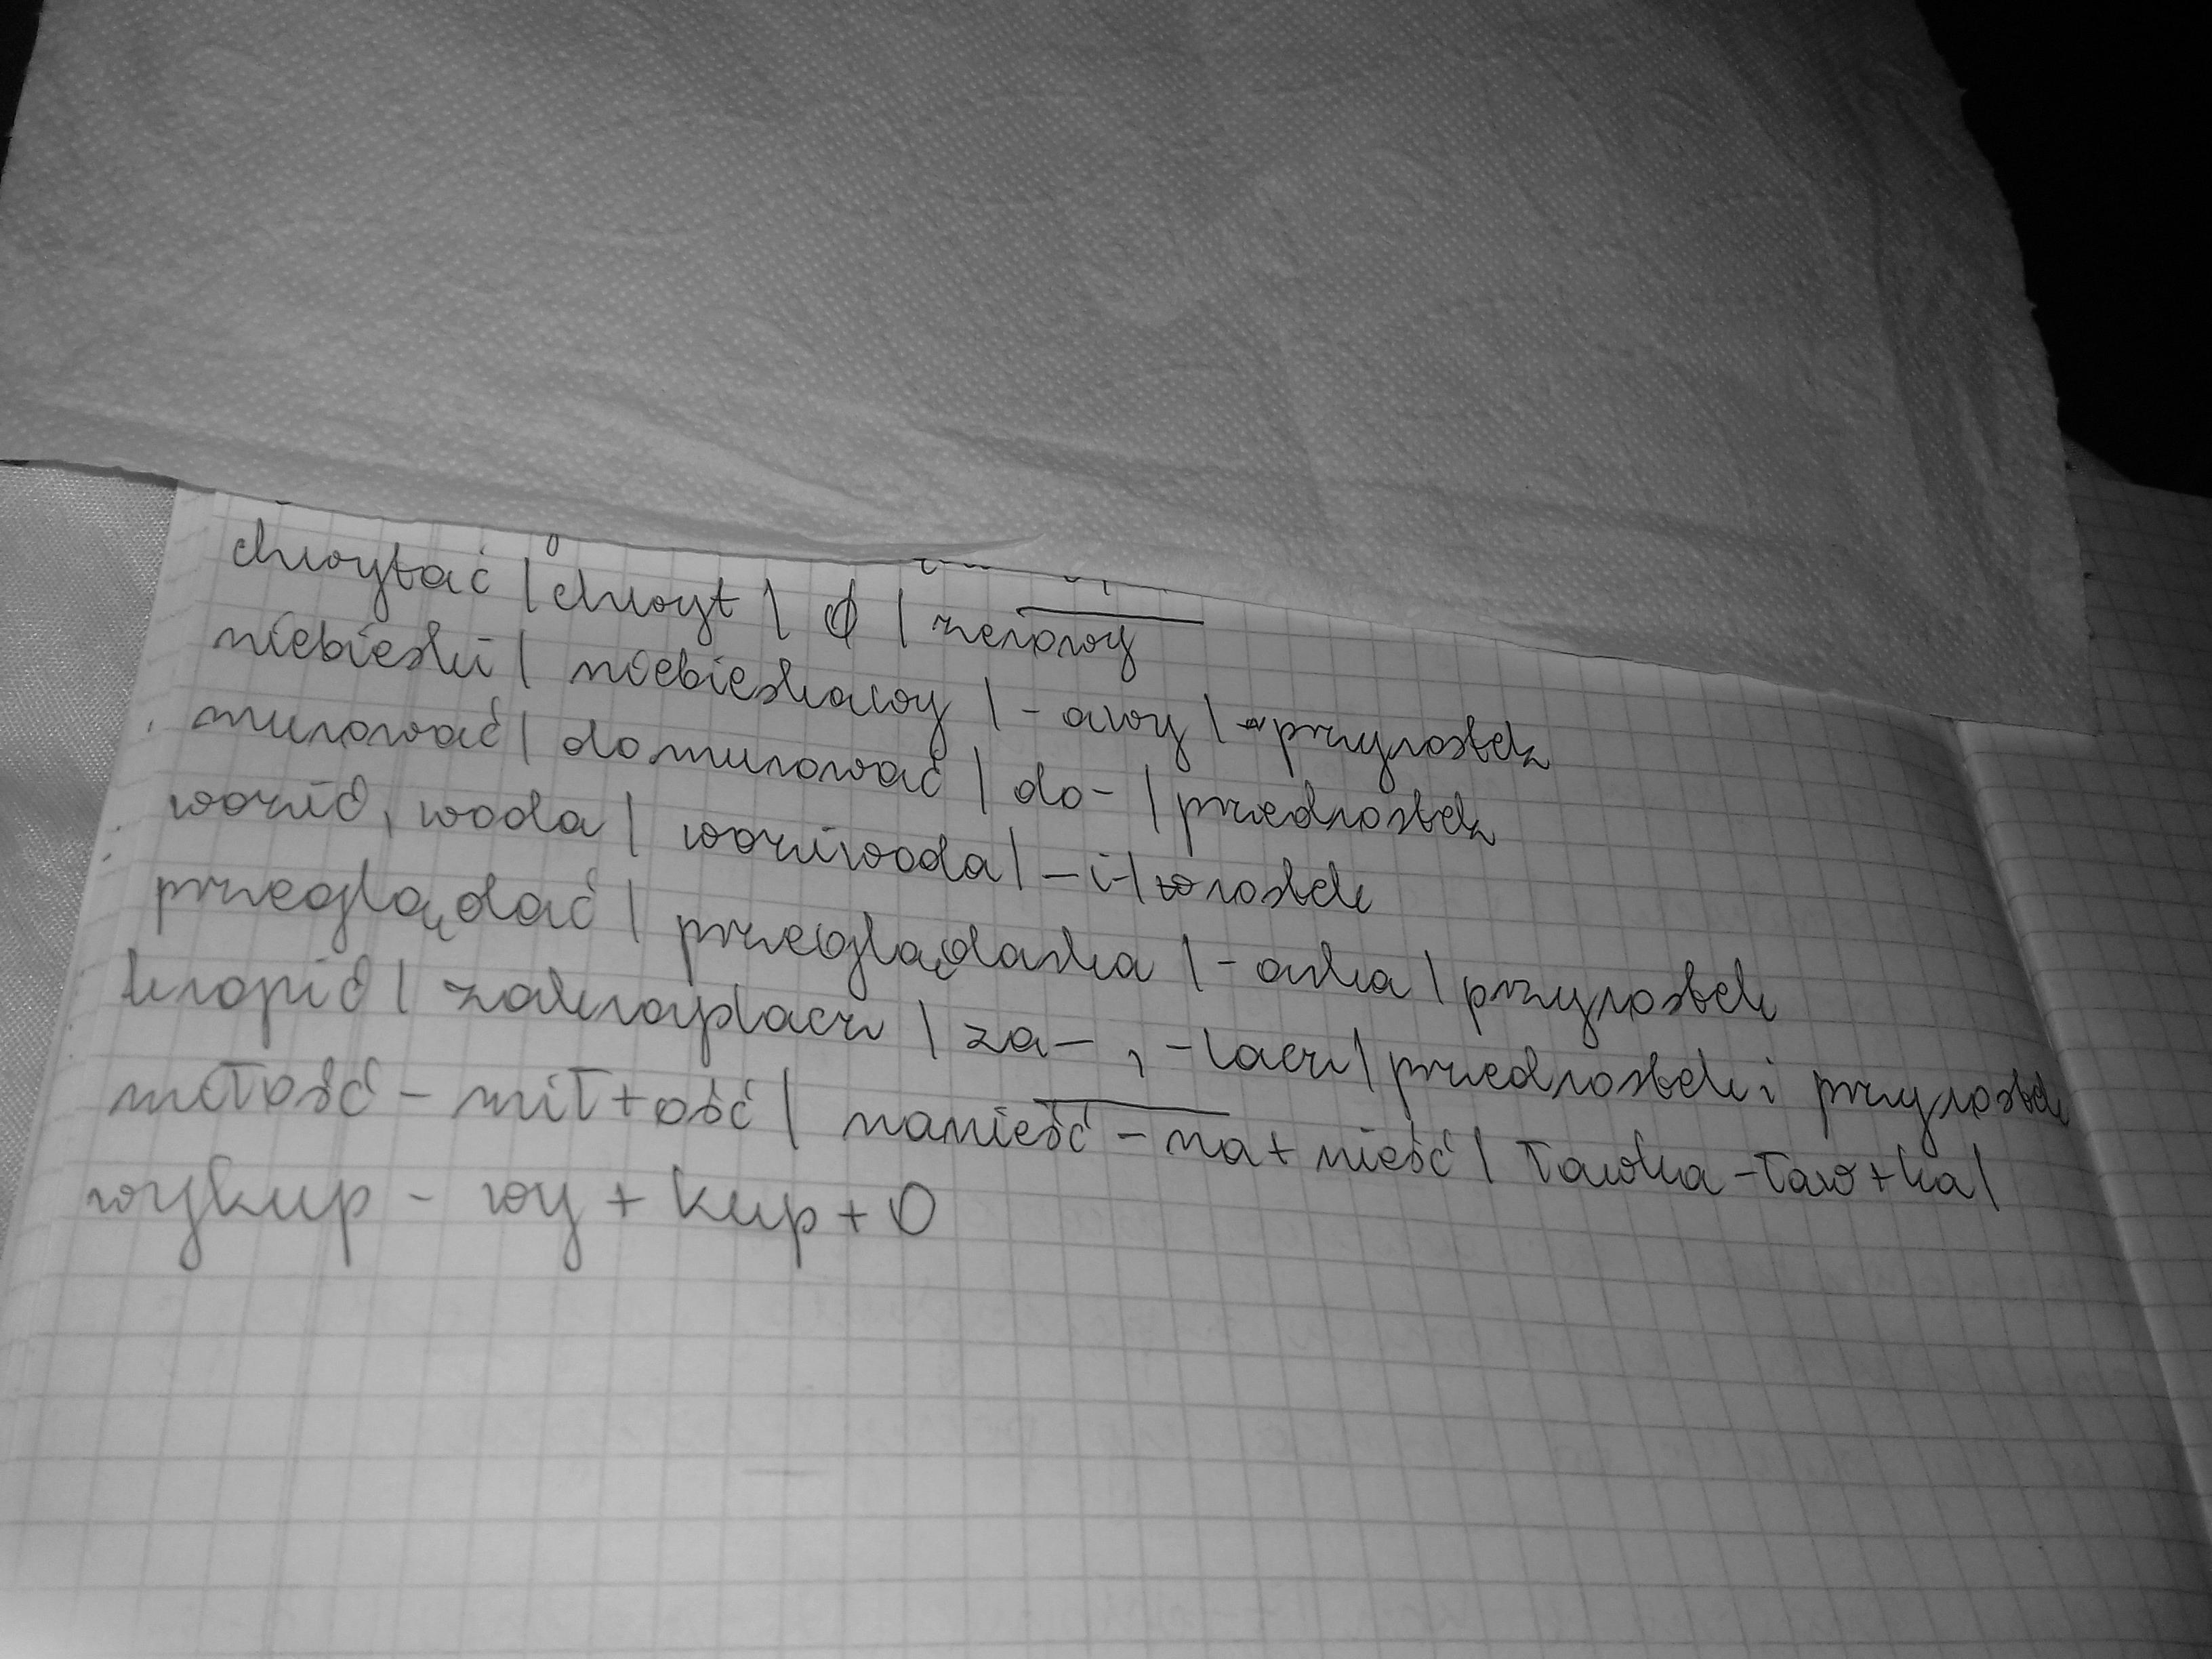 chwytać | chwyt | ∅ | zerowy
niebieski | niebieskawy | - awy | przyrostek
murować | domurować | do- | przedrostek
wozić, woda | woziwoda | -i- | wrostek
przeglądać | przeglądarka | - arka | przyrostek
kropić | zakraplacz | za- , -lacz | przedrostek i przyrostek
miłość - mił+ość | nanieść - na+nieść | ławka -ław+ka |
wykup - wy + kup + 0